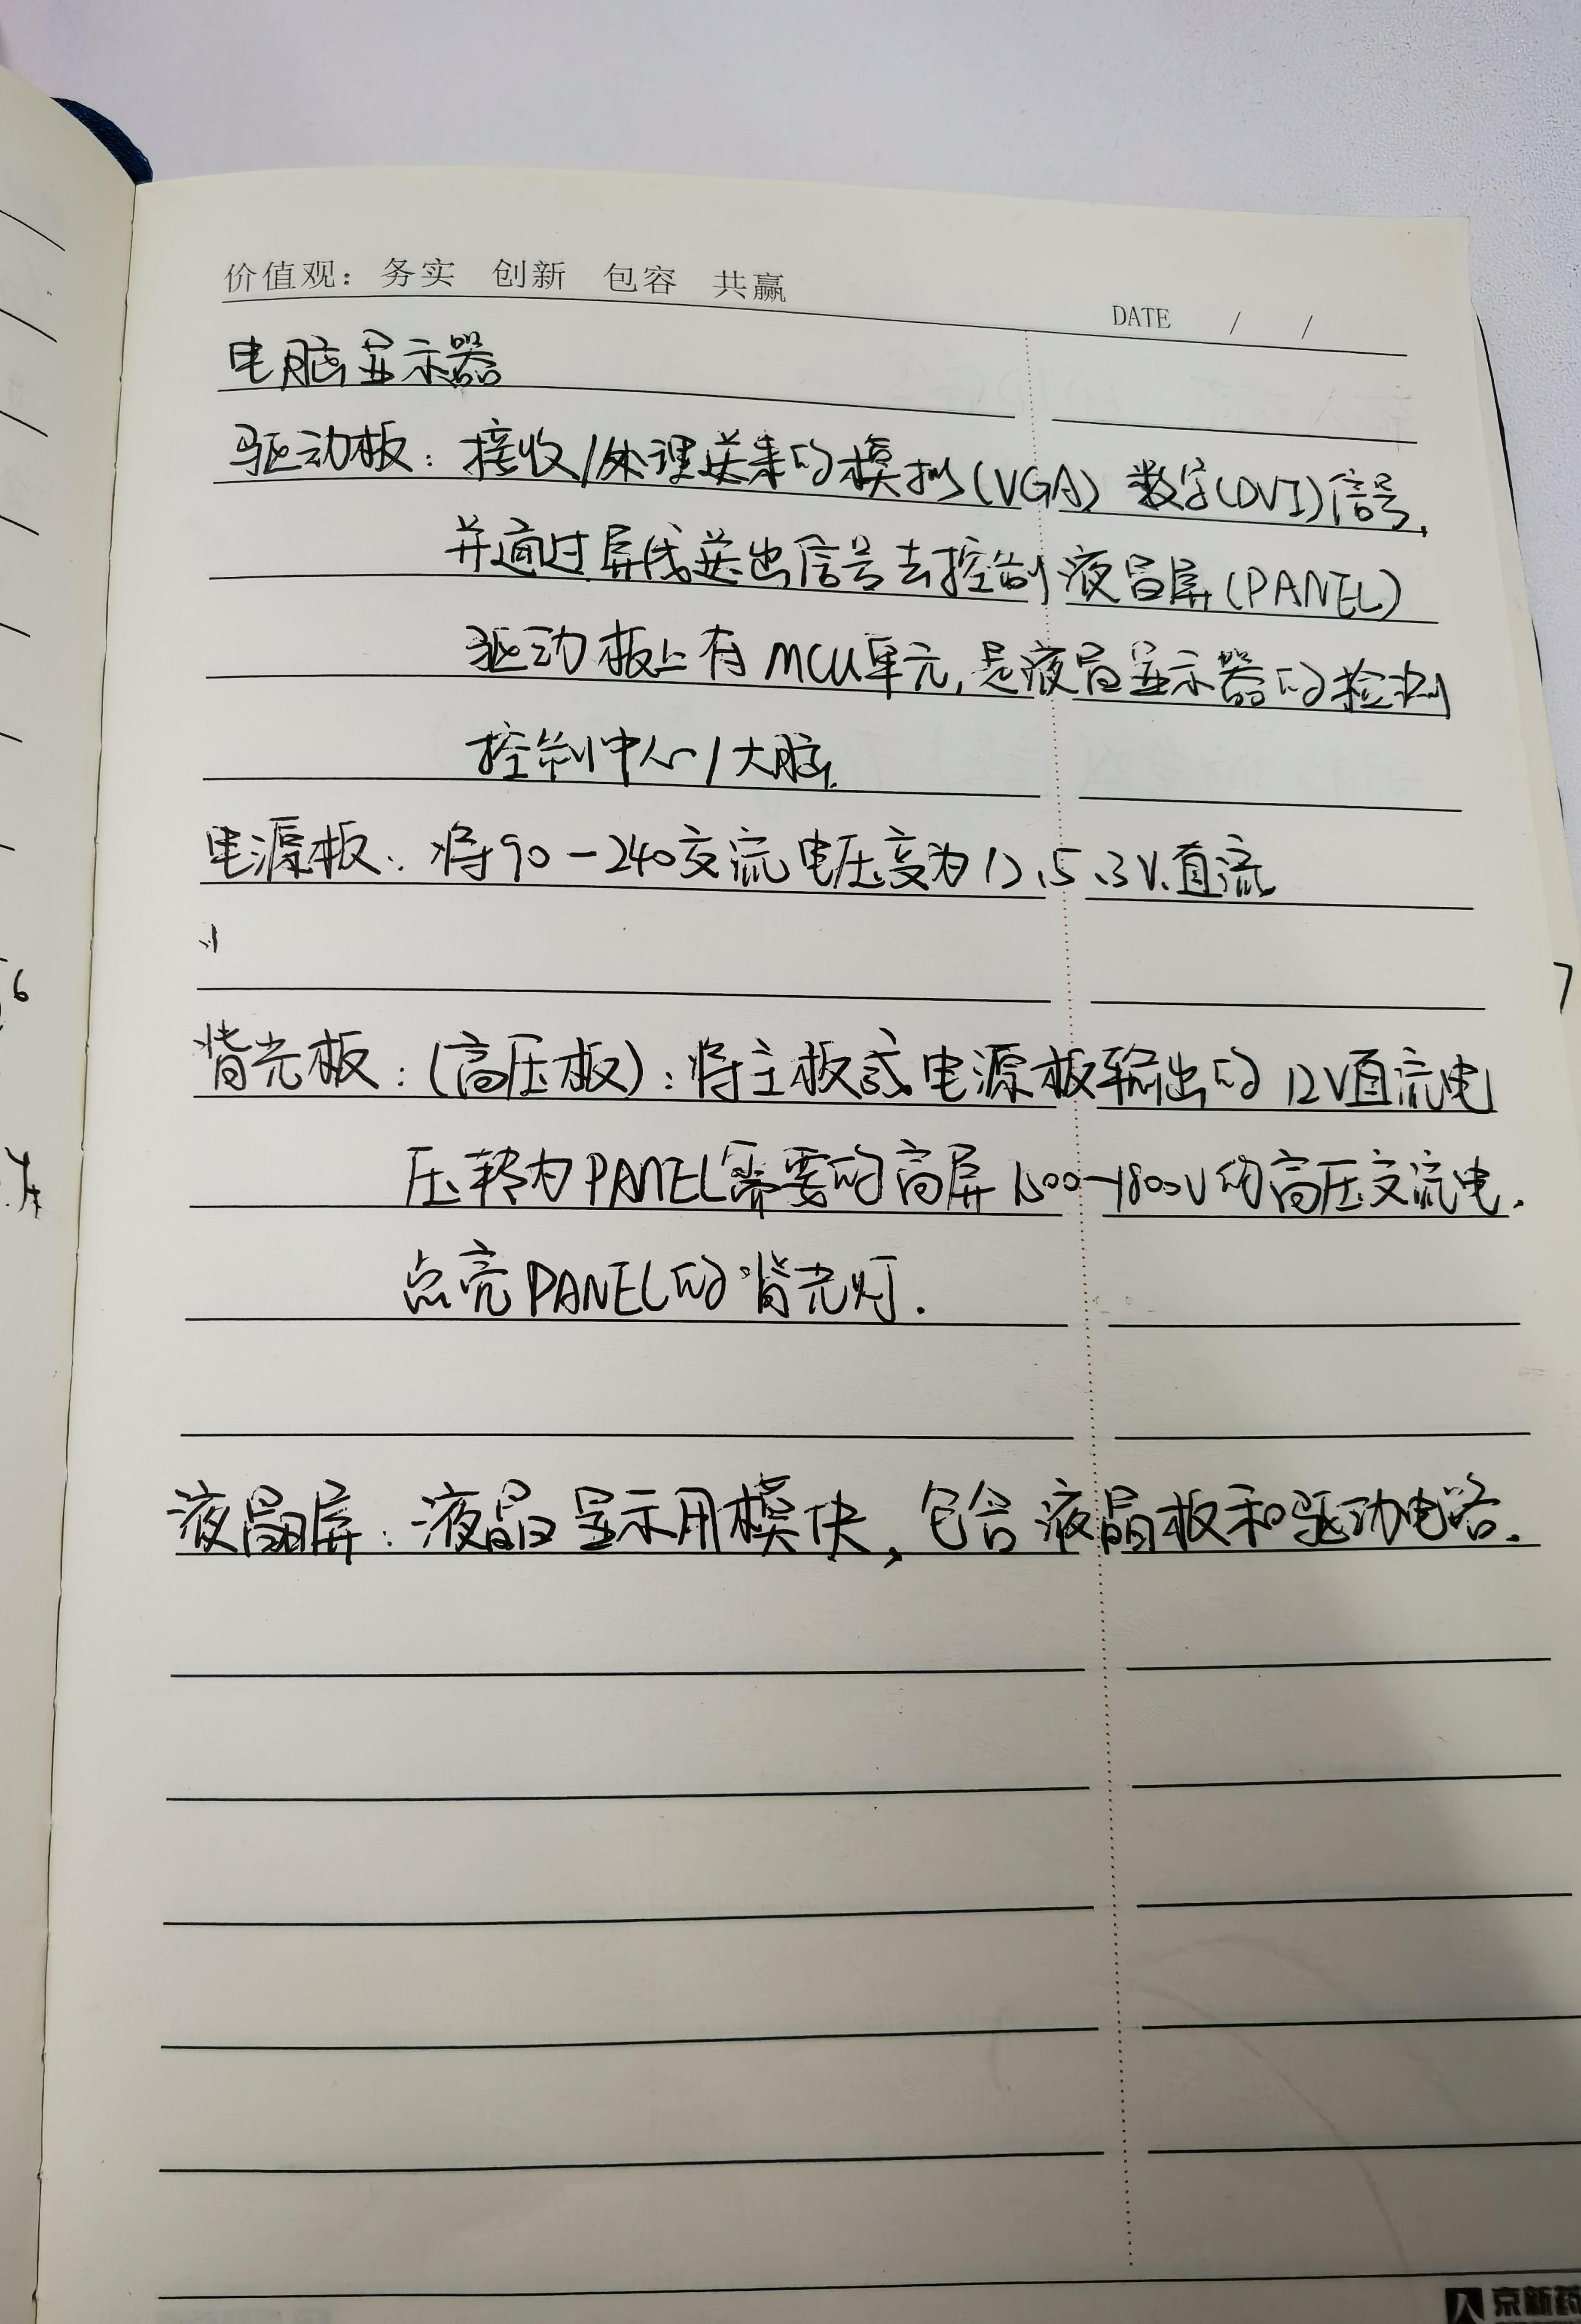 价值观：务实 创新 包容 共赢
DATE / /
电脑显示器
驱动板：接收/处理送来的模拟(VGA) 数字(DVI)信号,
并通过屏线送出信号去控制液晶屏(PANEL)
驱动板上有MCU单元,是液晶显示器的检测
控制中心/大脑.
电源板：将90-240交流电压变为12、5、3V.直流
背光板：(高压板)：将主板或电源板输出的12V直流电
压转为PANEL需要的高屏1500-1800V的高压交流电.
点亮PANEL的背光灯.
液晶屏：液晶显示用模块,包含液晶板和驱动电路.
京新药